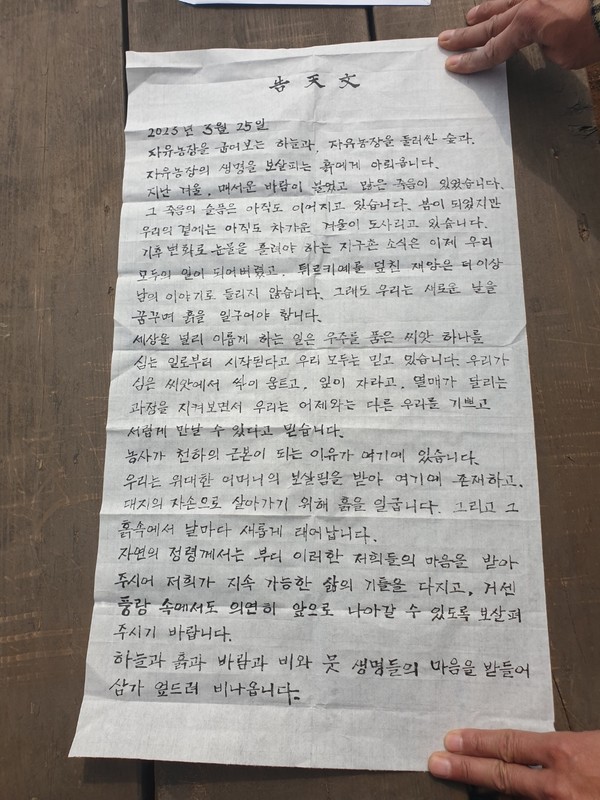 告天文
2023년 3월 25일
자유농장을 굽어보는 하늘과, 자유농장을 둘러싼 숲과,
자유농장의 생명을 보살피는 흙에게 아뢰옵니다.
지난 겨울, 매서운 바람이 불었고 많은 죽음이 있었습니다.
그 죽음의 슬픔은 아직도 이어지고 있습니다. 봄이 되었지만
우리의 곁에는 아직도 차가운 겨울이 도사리고 있습니다.
기후변화로 눈물을 흘려야 하는 지구촌 소식은 이제 우리
모두의 일이 되어버렸고, 튀르키예를 덮친 재앙은 더이상
남의 이야기로 들리지 않습니다. 그래도 우리는 새로운 날을
꿈꾸며 흙을 일구어야 합니다.
세상을 널리 이롭게 하는 일은 우주를 품은 씨앗 하나를
심는 일로부터 시작된다고 우리 모두는 믿고 있습니다. 우리가
심은 씨앗에서 싹이 움트고, 잎이 자라고, 열매가 달리는
과정을 지켜보면서 우리는 어제와는 다른 우리를 기쁘고
서럽게 만날 수 있다고 믿습니다.
농사가 천하의 근본이 되는 이유가 여기에 있습니다.
우리는 위대한 어머니의 보살핌을 받아 여기에 존재하고,
대지의 자손으로 살아가기 위해 흙을 일굽니다. 그리고 그
흙속에서 날마다 새롭게 태어납니다.
자연의 정령께서는 부디 이러한 저희들의 마음을 받아
주시어 저희가 지속 가능한 삶의 기틀을 다지고, 거센
풍랑 속에서도 의연히 앞으로 나아갈 수 있도록 보살펴
주시기 바랍니다.
하늘과 흙과 바람과 비와 뭇 생명들의 마음을 받들어
삼가 엎드려 비나옵니다.